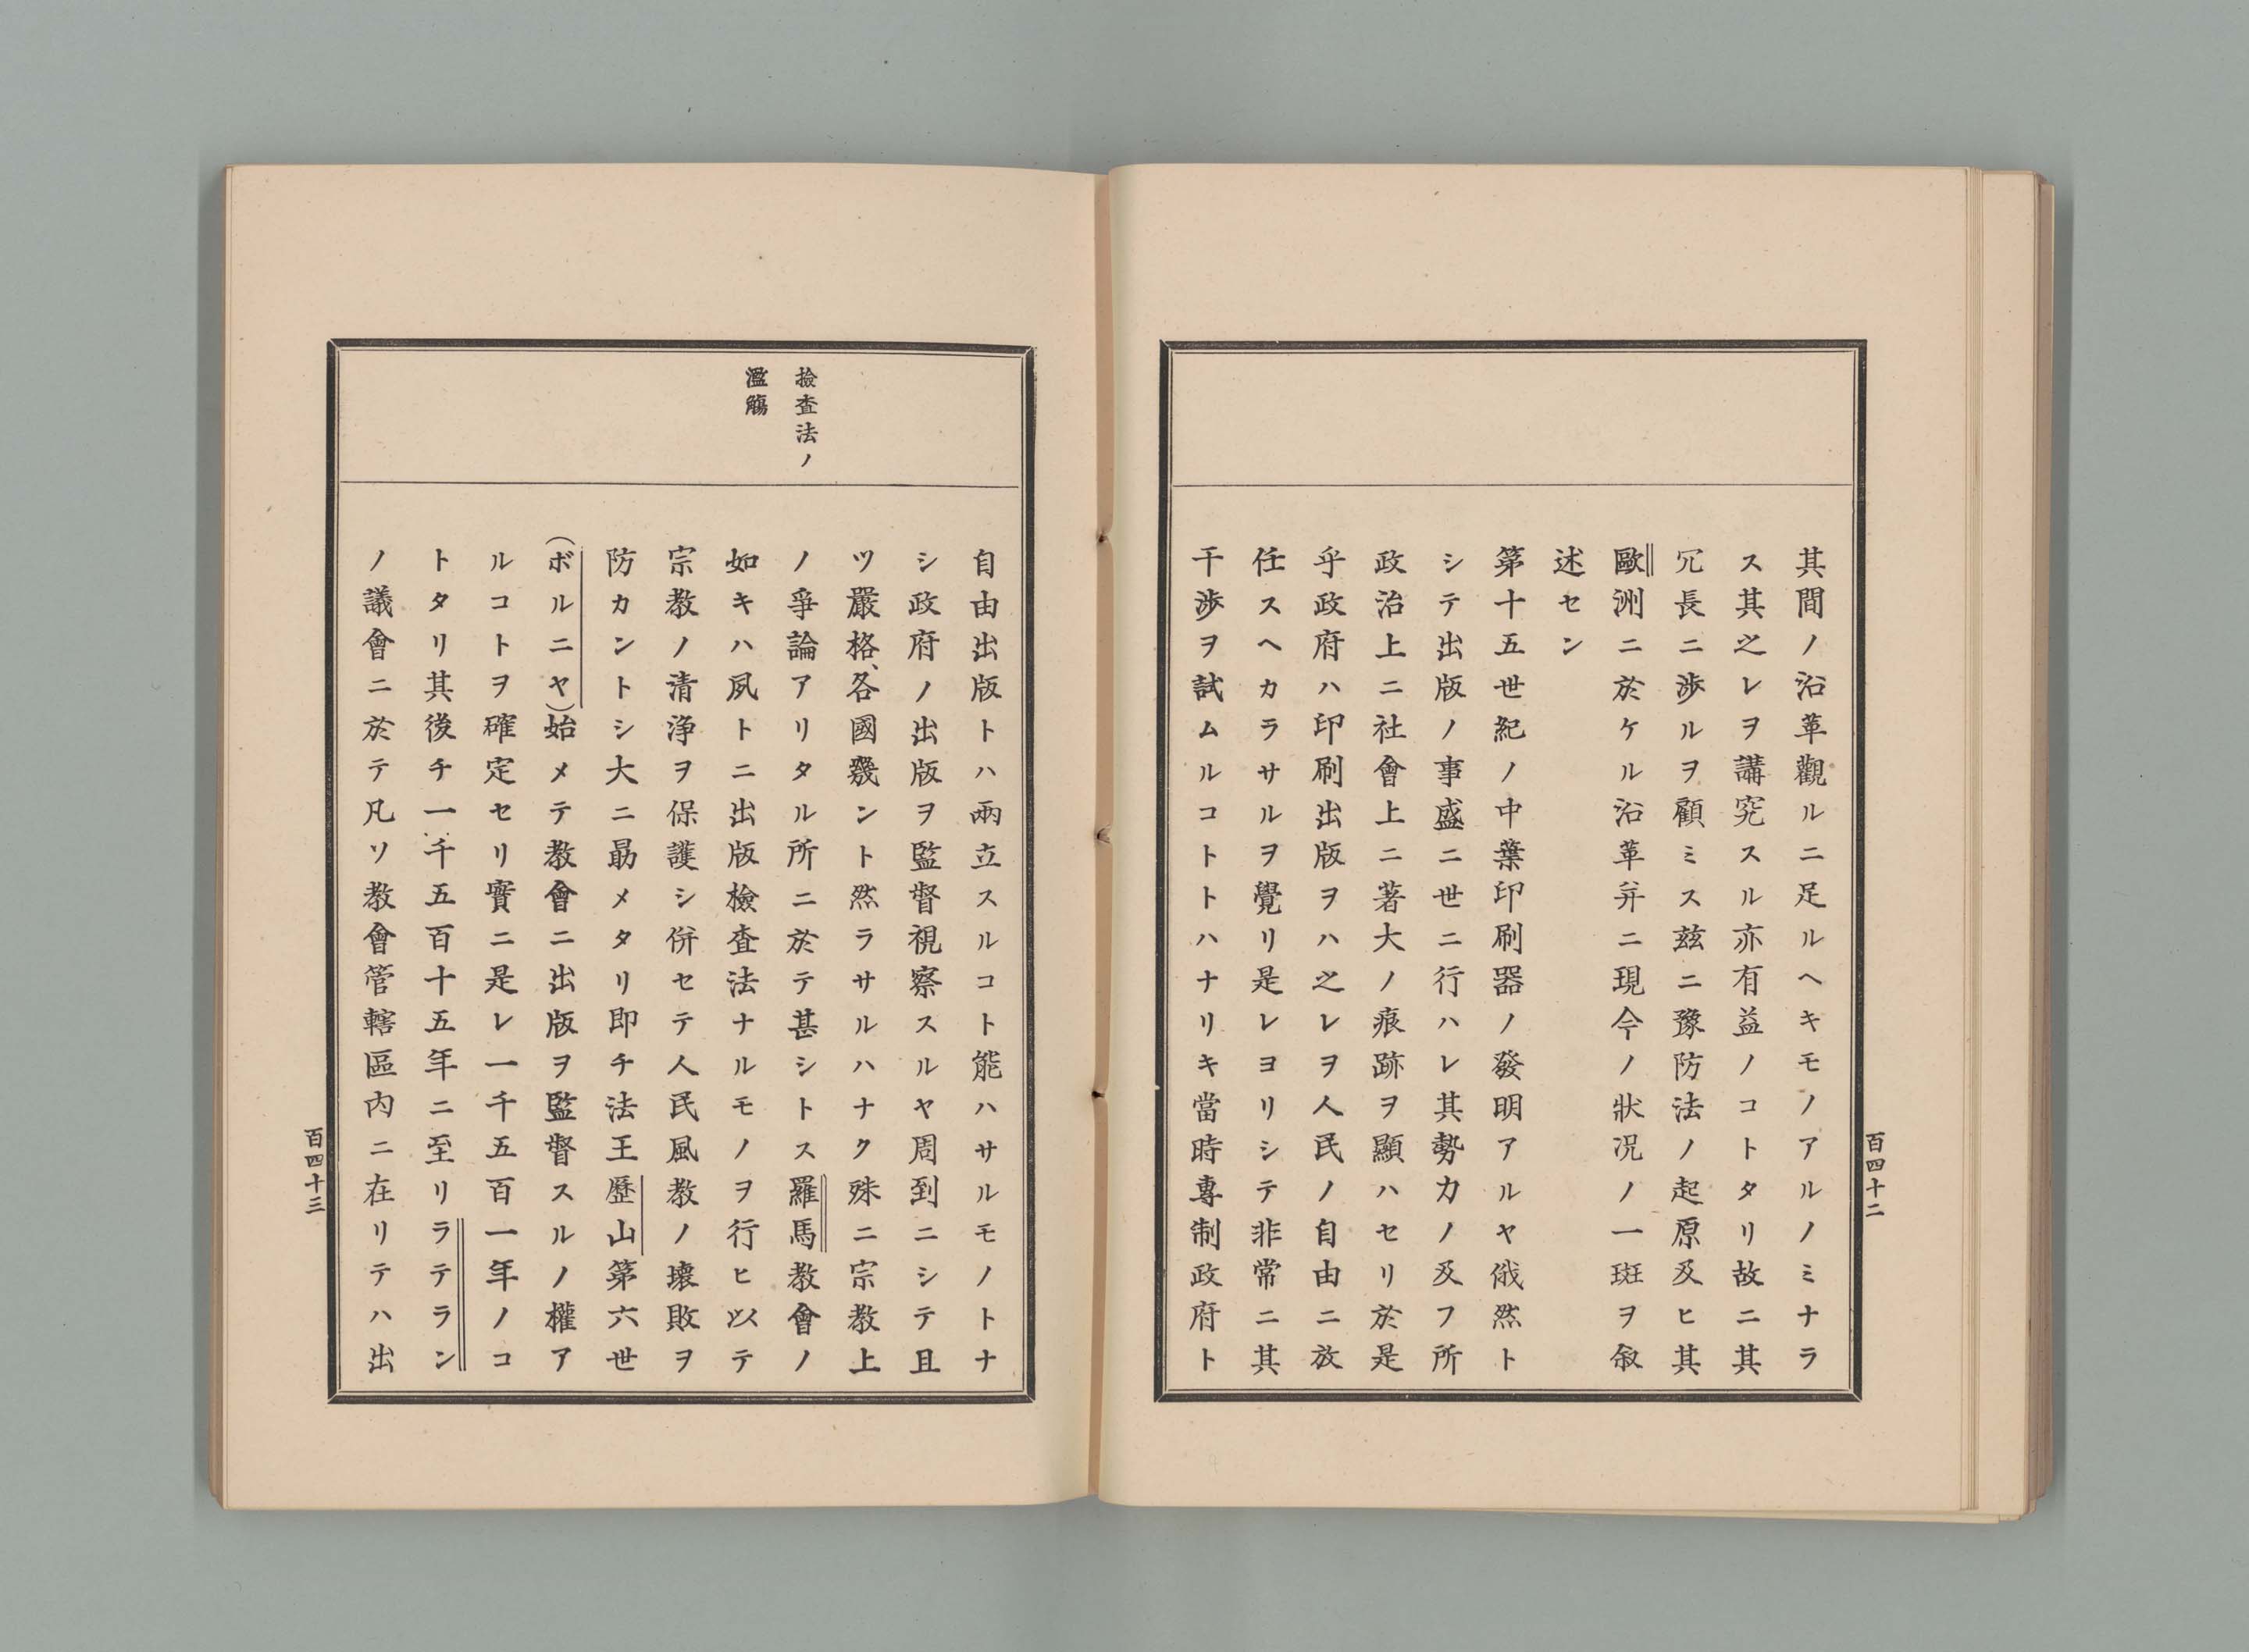 其間ノ沿革觀ルニ足ルヘキモノアルノミナラ
ス其之レヲ講究スル亦有益ノコトタリ故ニ其
冗長ニ渉ルヲ顧ミス玆ニ豫防法ノ起原及ヒ其
歐洲ニ於ケル沿革并ニ現今ノ狀况ノ一斑ヲ叙
述セン
第十五世紀ノ中葉印刷器ノ發明アルヤ俄然ト
シテ出版ノ事盛ニ世ニ行ハレ其勢力ノ及フ所
政治上ニ社會上ニ著大ノ痕跡ヲ顯ハセリ於是
乎政府ハ印刷出版ヲハ之レヲ人民ノ自由ニ放
任スヘカラサルヲ覺リ是レヨリシテ非常ニ其
干渉ヲ試ムルコトトハナリキ當時專制政府ト
百四十二
檢査法ノ
濫觴
自由出版トハ兩立スルコト能ハサルモノトナ
シ政府ノ出版ヲ監督視察スルヤ周到ニシテ且
ツ嚴格、各國幾ント然ラサルハナク殊ニ宗教上
ノ爭論アリタル所ニ於テ甚シトス羅馬教會ノ
如キハ夙トニ出版檢査法ナルモノヲ行ヒ以テ
宗教ノ清浄ヲ保護シ併セテ人民風教ノ壞敗ヲ
防カントシ大ニ勗メタリ即チ法王歷山第六世
(ボルニヤ)始メテ教會ニ出版ヲ監督スルノ權ア
ルコトヲ確定セリ實ニ是レ一千五百一年ノコ
トタリ其後チ一千五百十五年ニ至リラテラン
ノ議會ニ於テ凡ソ教會管轄區内ニ在リテハ出
百四十三